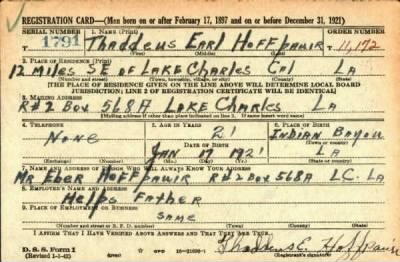 REGISTRATION CARD—(Men born on or after February 17, 1897 and on or before December 31, 1921)
SERIAL NUMBER 1. NAME (Print) ORDER NUMBER
1791 Thaddeus Earl Hoffpauir 11,172
(First) (Middle) (Last)
2. PLACE OF RESIDENCE (Print)
12 Miles SE of LAKE CHARLES Cal LA
(Number and street) (Town, township, village, or city) (County) (State)
[THE PLACE OF RESIDENCE GIVEN ON THE LINE ABOVE WILL DETERMINE LOCAL BOARD
JURISDICTION; LINE 2 OF REGISTRATION CERTIFICATE WILL BE IDENTICAL]
3. MAILING ADDRESS
R#2 Box 568A LAKE Charles LA
[Mailing address if other than place indicated on line 2. If same insert word same]
4. TELEPHONE 5. AGE IN YEARS 6. PLACE OF BIRTH
None 21 Indian Bayou
DATE OF BIRTH (Town or county)
JAN 17 1921 LA
(Exchange) (Number) (Mo.) (Day) (Yr.) (State or country)
7. NAME AND ADDRESS OF PERSON WHO WILL ALWAYS KNOW YOUR ADDRESS
Mr Eber Hoffpauir R#2 Box 568A L.C. LA
8. EMPLOYER'S NAME AND ADDRESS
Helps Father
9. PLACE OF EMPLOYMENT OR BUSINESS
Same
(Number and street or R. F. D. number) (Town) (County) (State)
I AFFIRM THAT I HAVE VERIFIED ABOVE ANSWERS AND THAT THEY ARE TRUE.
D. S. S. Form 1 GPO 16—21630-1 Thaddeus E. Hoffpauir
(Revised 1-5-42) (Registrant's signature)